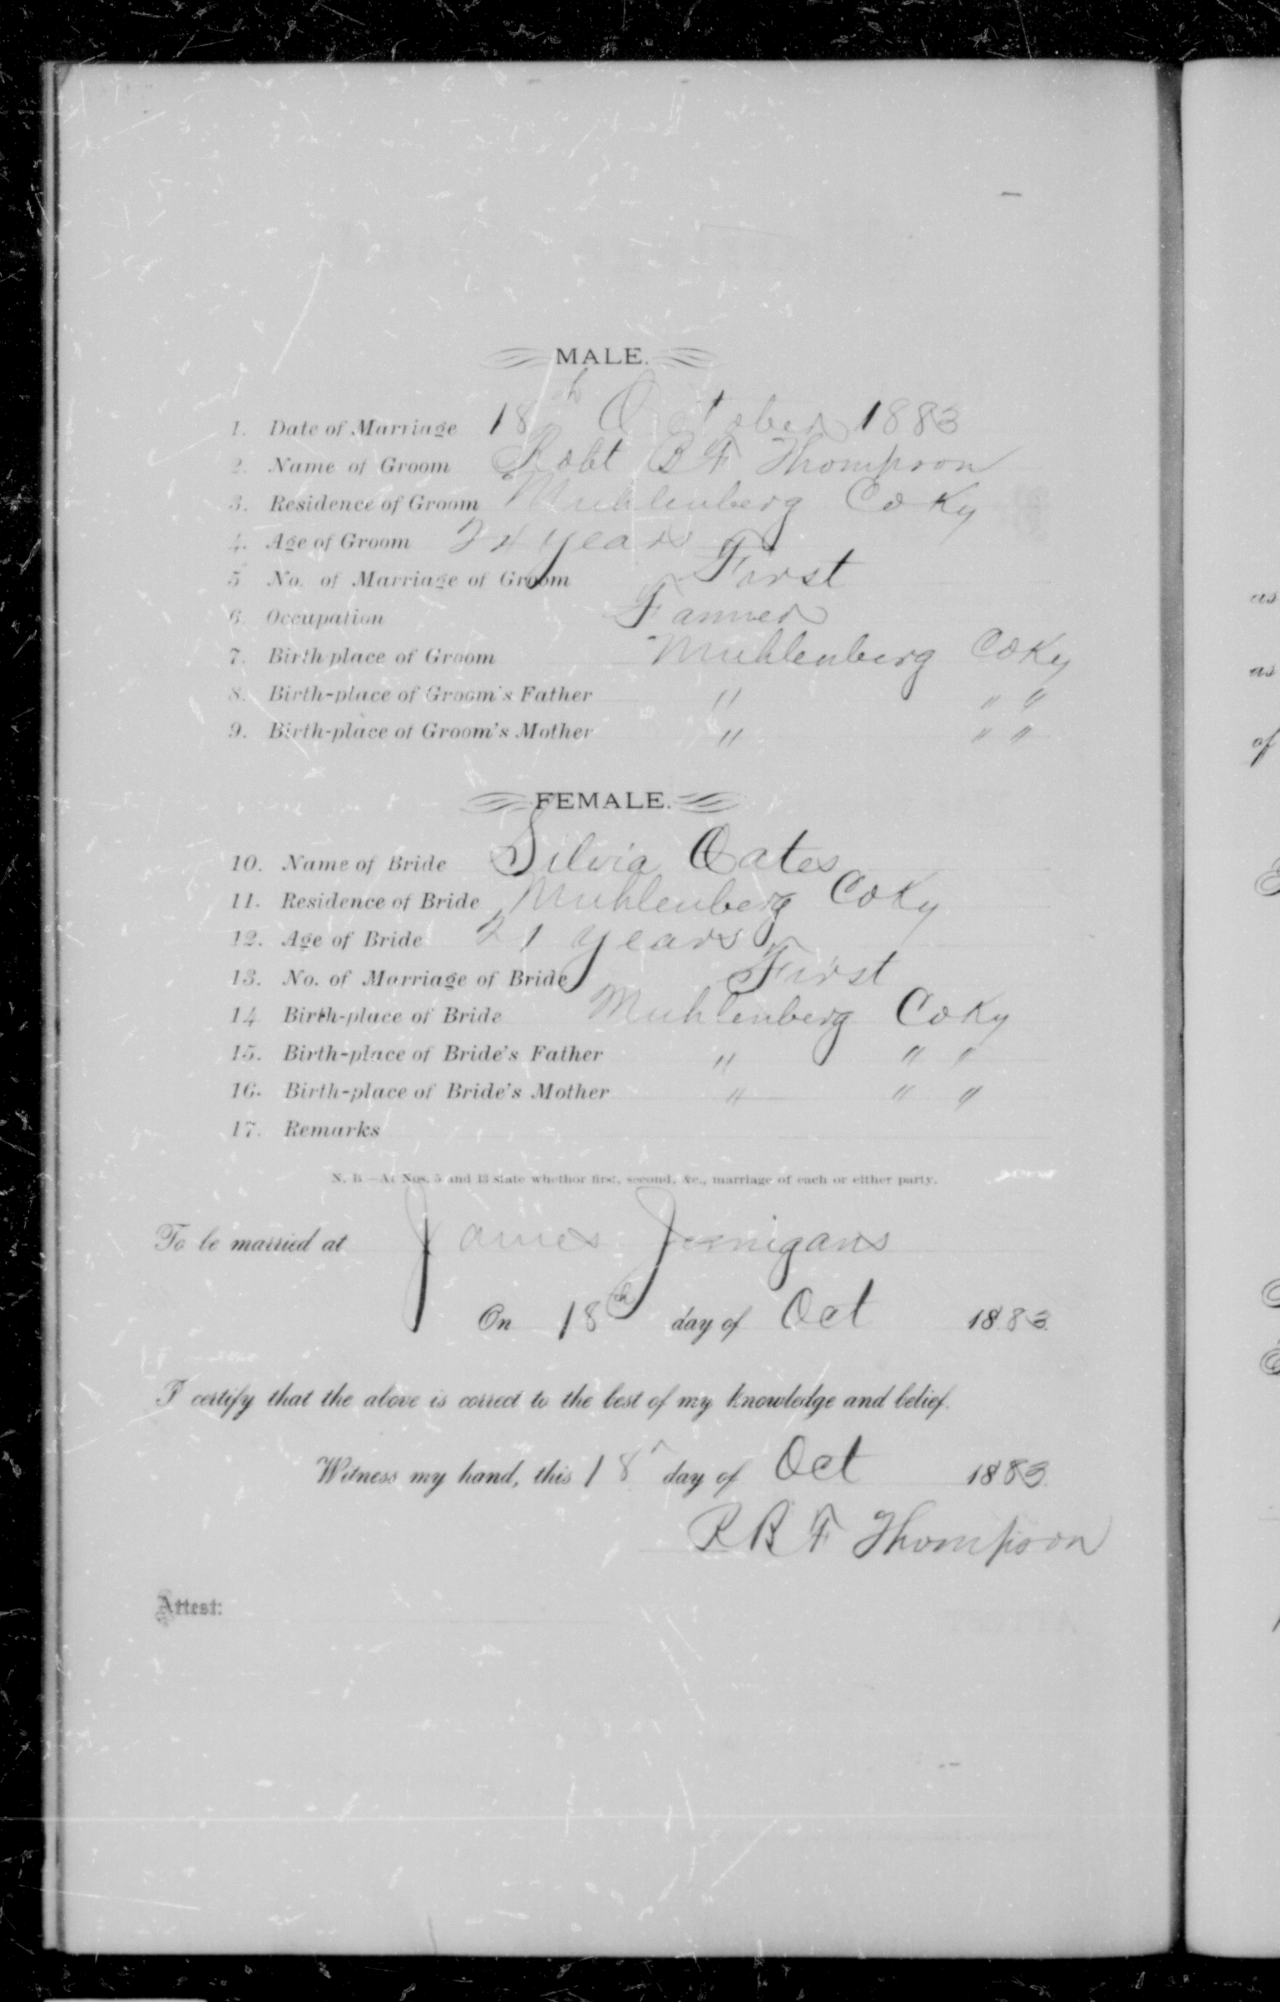 MALE.
1. Date of Marriage 18th October 1883
2. Name of Groom Robt B F Thompson
3. Residence of Groom Muhlenberg Co Ky
4. Age of Groom 24 years
5 No. of Marriage of Groom First
6. Occupation Farmer
7. Birth-place of Groom Muhlenberg Co Ky
8. Birth-place of Groom's Father " " "
9. Birth-place of Groom's Mother " " "
FEMALE.
10. Name of Bride Silvia Oates
11. Residence of Bride Muhlenberg Co Ky
12. Age of Bride 21 years
13. No. of Marriage of Bride First
14 Birth-place of Bride Muhlenberg Co Ky
15. Birth-place of Bride's Father " " "
16. Birth-place of Bride's Mother " " "
17. Remarks
N. B.—At Nos. 5 and 13 state whethor first, second, &c., marriage of each or either party.
To be married at James Jernigans
On 18th day of Oct 1883.
I certify that the above is correct to the best of my knowledge and belief.
Witness my hand, this 18 day of Oct 1883.
R B F Thompson
Attest:
as
as
of